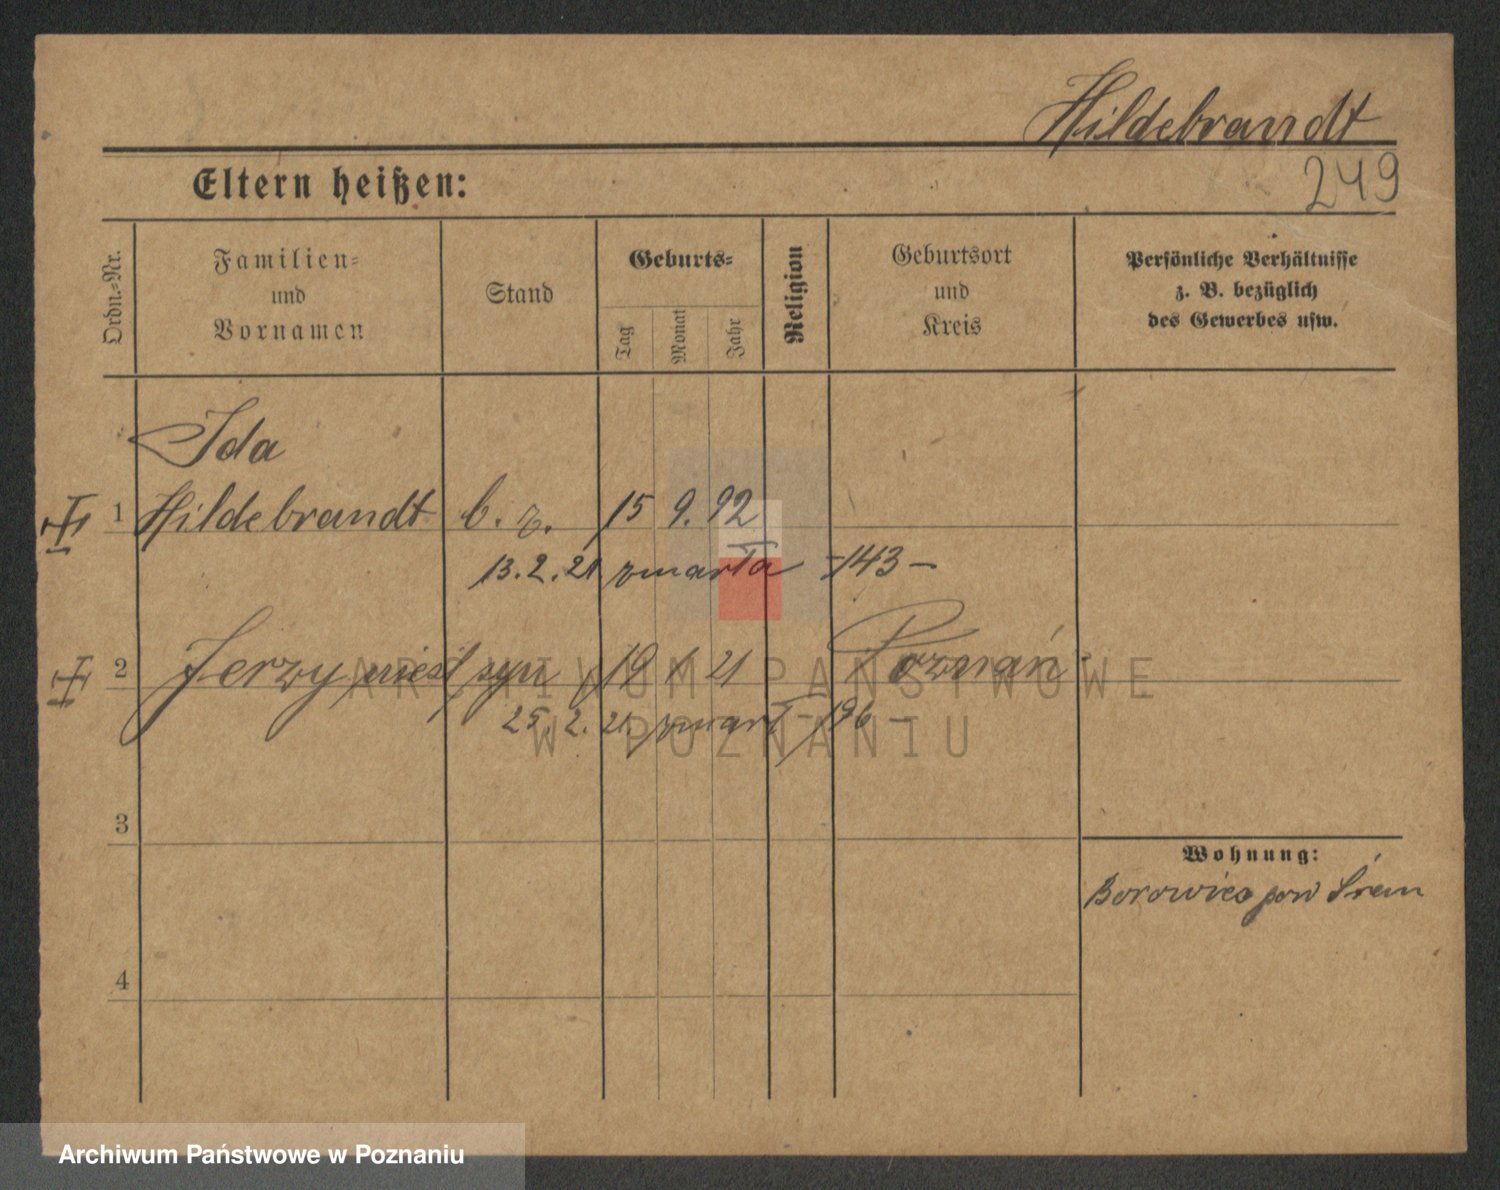 Hildebrandt
249
Eltern heißen:
Ordn.-Nr.
Familien-
und
Vornamen
Stand
Geburts-
Tag
Monat
Jahr
Religion
Geburtsort
und
Kreis
Persönliche Verhältnisse
z. B. bezüglich
des Gewerbes usw.
Ida
1 Hildebrandt b. r. 15 9. 92
13.2.21 zmarła -143-
2 Jerzy nieśl syn 19 1 21 Poznań
25.2.21. zmarł -196-
3
Wohnung:
Borowiec pow Śrem
4
ARCHIWUM PAŃSTWOWE
W POZNANIU
Archiwum Państwowe w Poznaniu